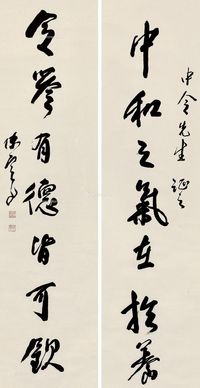 中和之氣在於養
申令先生証之
令譽有德皆可欽